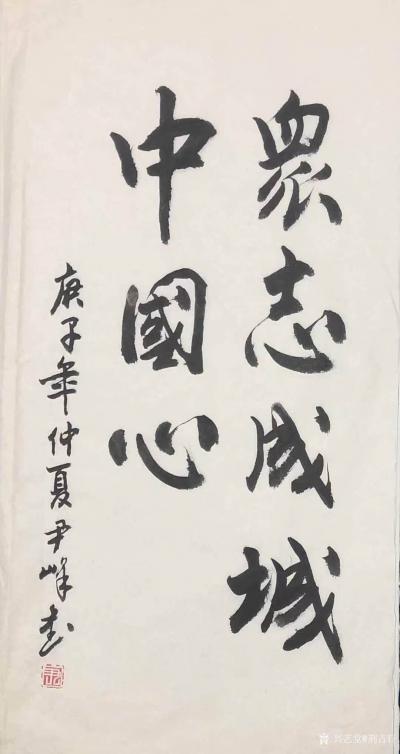 眾志成城
中國心
庚子年仲夏尹峰書